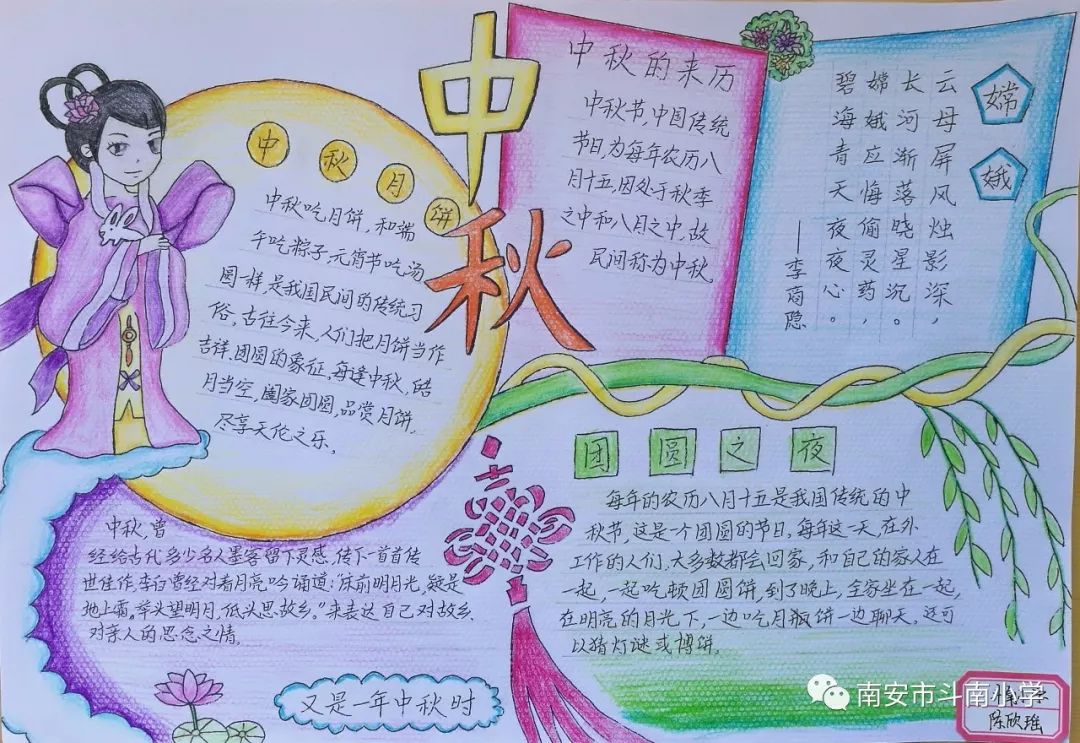 中秋
中秋月饼
中秋吃月饼，和端
午吃粽子元宵节吃汤
圆一样，是我国民间的传统习
俗，古往今来，人们把月饼当作
吉祥、团圆的象征，每逢中秋，皓
月当空，阖家团圆，品赏月饼，
尽享天伦之乐。
中秋的来历
中秋节，中国传统
节日，为每年农历八
月十五，因处于秋季
之中和八月之中，故
民间称为中秋
嫦娥
云母屏风烛影深，
长河渐落晓星沉。
嫦娥应悔偷灵药，
碧海青天夜夜心。
——李商隐
中秋，曾
经给古代多少名人墨客留下灵感，传下一首首传
世佳作，李白曾经对着月亮吟诵道：“床前明月光，疑是
地上霜。举头望明月，低头思故乡。”来表达自己对故乡、
对亲人的思念之情。
团圆之夜
每年的农历八月十五是我国传统的中
秋节，这是一个团圆的节日，每年这一天，在外
工作的人们，大多数都会回家，和自己的家人在
一起，一起吃顿团圆饼，到了晚上，全家坐在一起，
在明亮的月光下，一边吃月瓶饼一边聊天。还可
以猜灯谜或博饼。
又是一年中秋时
南安市斗南小学
陈欣瑶